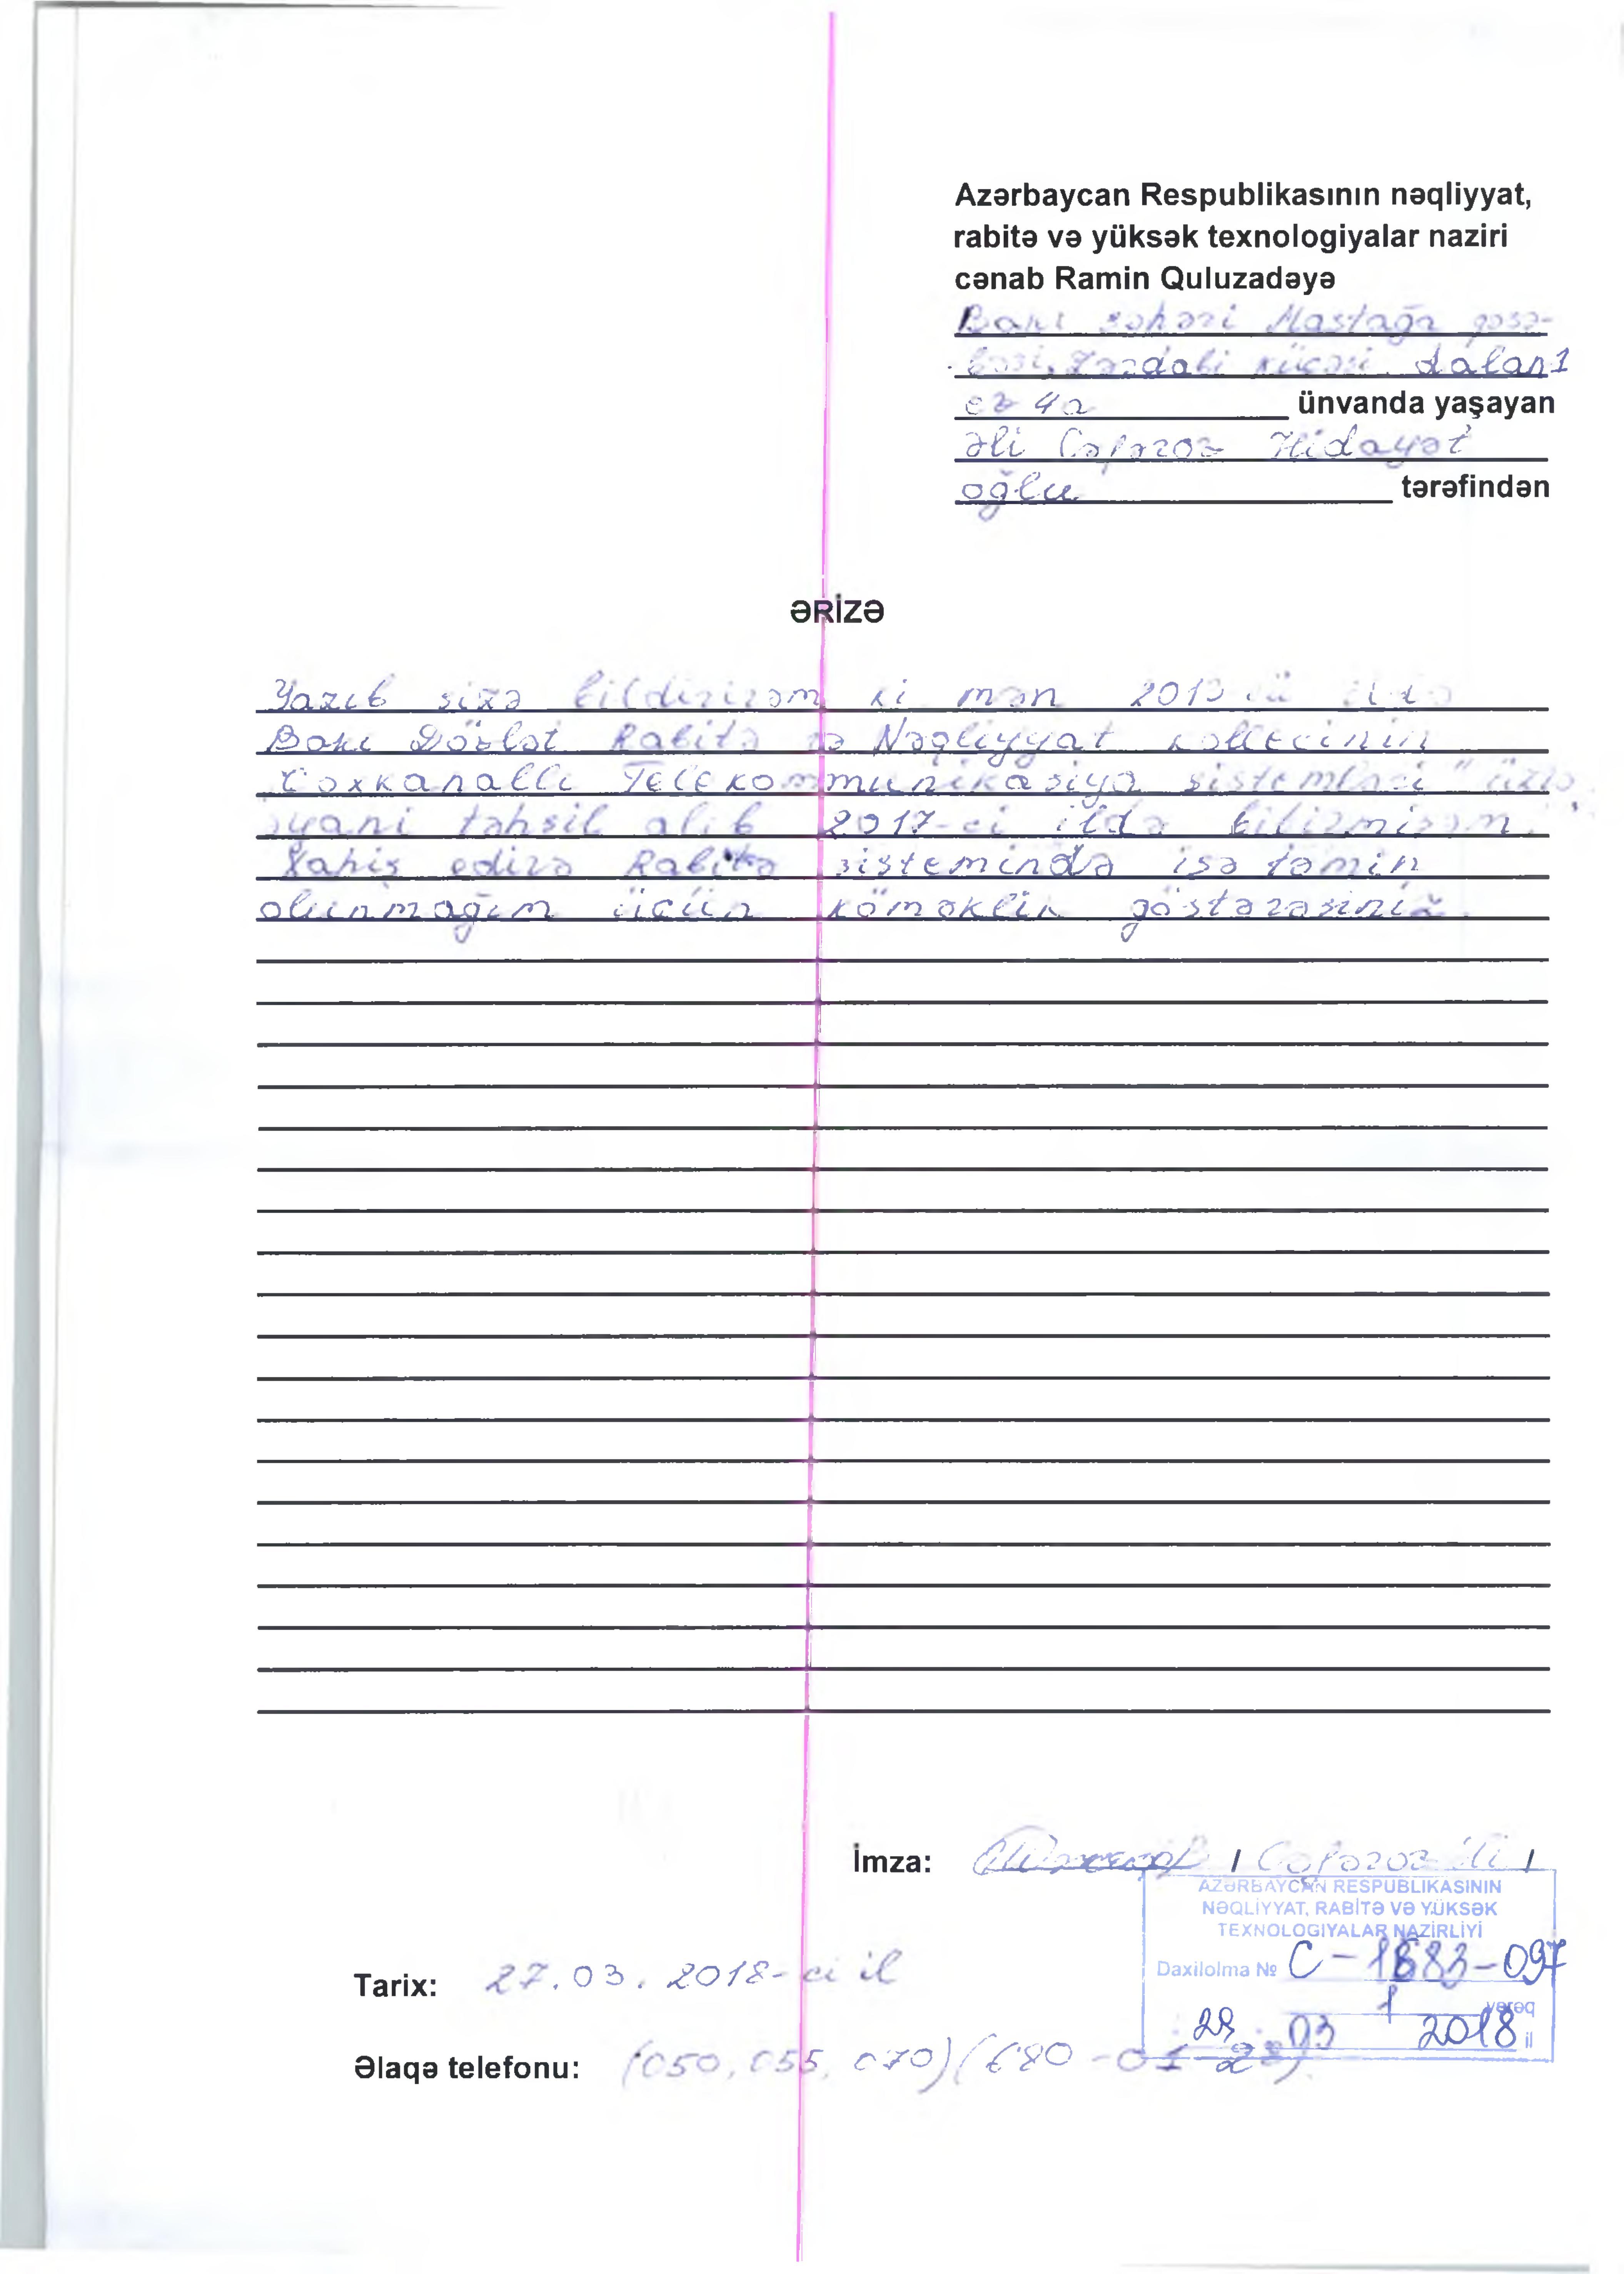 Azərbaycan Respublikasının nəqliyyat,
rabitə və yüksək texnologiyalar naziri
cənab Ramin Quluzadəyə
Bakı şəhəri Maştağa qəsə-
bəsi, küçəsi dalan 1
ev 4a ünvanda yaşayan
Əli Cəfərov Hidayət
oğlu tərəfindən
ƏRİZƏ
Yazıb sizə bildirirəm ki mən ildə
Bakı Dövlət Rabitə və Nəqliyyat kollecinin
Çoxkanallı Telekommunikasiya sistemləri" üzrə
əyani təhsil alıb 2017-ci ildə bitirmişəm.
Xahiş edirə Rabitə sistemində işə təmin
olunmağım üçün köməklik göstərəsiniz.
İmza: / Cəfərov Əli /
AZƏRBAYCAN RESPUBLIKASININ
NƏQLİYYAT, RABİTƏ VƏ YÜKSƏK
TEXNOLOGIYALAR NAZİRLİYİ
Daxilolma № C-1883-097
1 vərəq
29 03 2018 il
Tarix: 27.03.2018-ci il
Əlaqə telefonu: (050, 055, 070)(680-01-